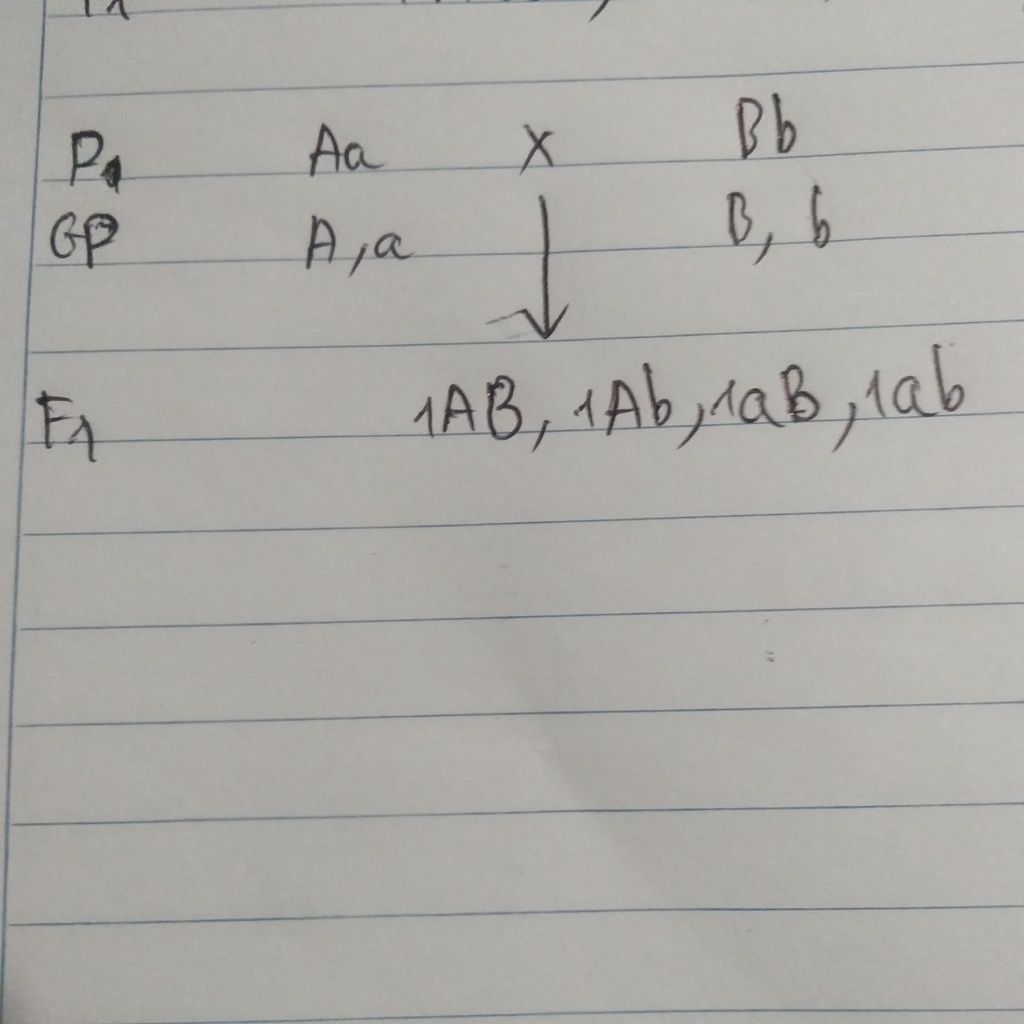 P1 Aa X Bb
GP A, a B, b
F1 1AB, 1Ab, 1aB, 1ab